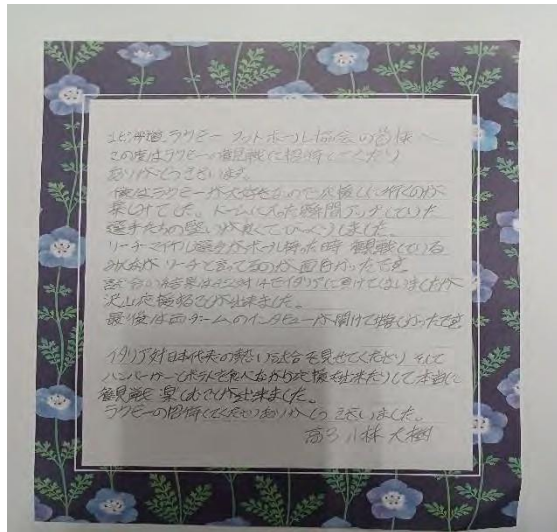 北海道ラグビーフットボール協会の皆様へ
この度はラグビーの観戦に招待してくださり
ありがとうございます。
僕はラグビーが大好きなので応援しに行くのが
楽しみでした。ドームに入った瞬間アップしていた
選手たちの壁が大きくてびっくりしました。
リーチマイケル選手がボール持った時 観戦している
みんなが リーチと言ってるのが面白かったです。
試合の結果は 対14でイタリアに負けてしまいましたが
沢山応援することが出来ました。
最後は両チームのインタビューが聞けて嬉しかったです。
イタリア対日本代表の熱い試合を見せてくださり そして
ハンバーガーとポテトを食べながら応援も出来たりして本当に
観戦を楽しむことが出来ました。
ラグビーの招待してくださりありがとうございました。
高3 小林 大樹